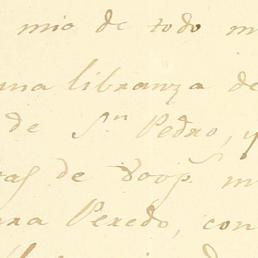 mio de todo m
una libranza de
de Sn Pedro, y
ras de Voop.s m
ara Peredo, con